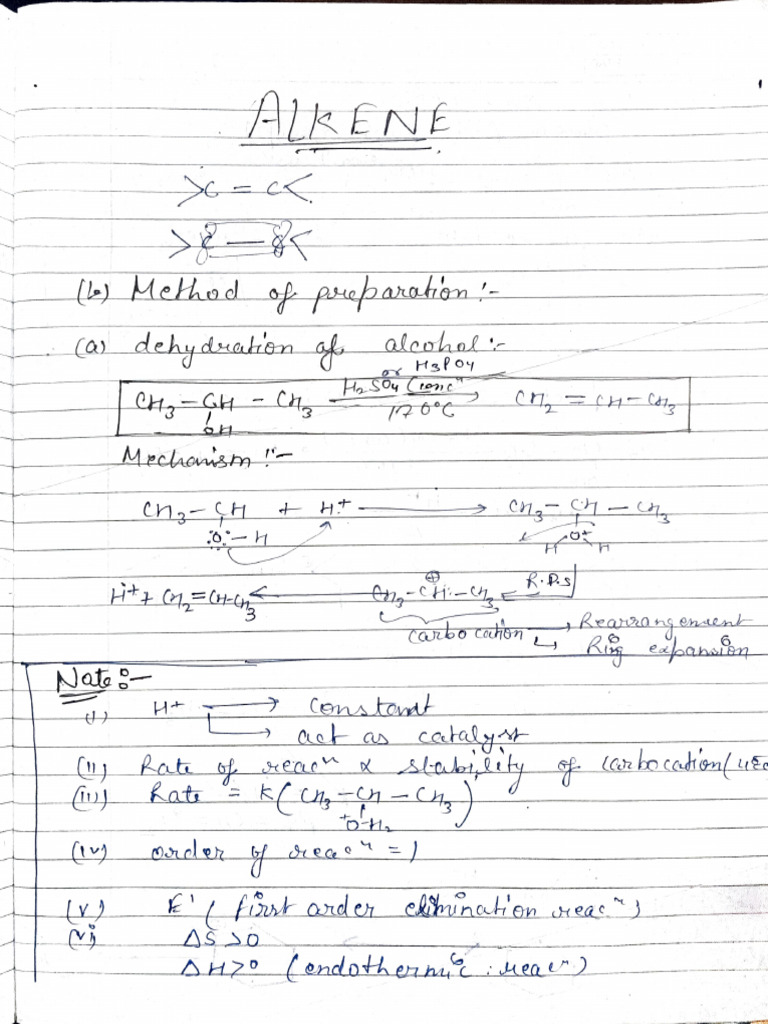 ALKENE
>C = C<
>C — C<
(b) Method of preparation :-
(a) dehydration of alcohol :-
or H3PO4
CH3 - CH - CH3 H2SO4 (concn) 170°C → CH2 = CH - CH3
OH
Mechanism :-
CH3 - CH + H+ → CH3 - CH - CH3
:O: - H
H O+ H
H+ + CH2 = CH-CH3 ← CH3 - CH - CH3 ← R.D.S
⊕
carbocation → Rearrangement
↳ Ring expansion
Note :-
(i) H+ → constant
↳ act as catalyst
(ii) Rate of reacn ∝ stability of carbocation (
(iii) Rate = K (CH3 - CH - CH3)
+O-H2
(iv) order of reacn = 1
(v) E' (first order elimination reacn)
(vi) ΔS > 0
ΔH > 0 (endothermic reacn)